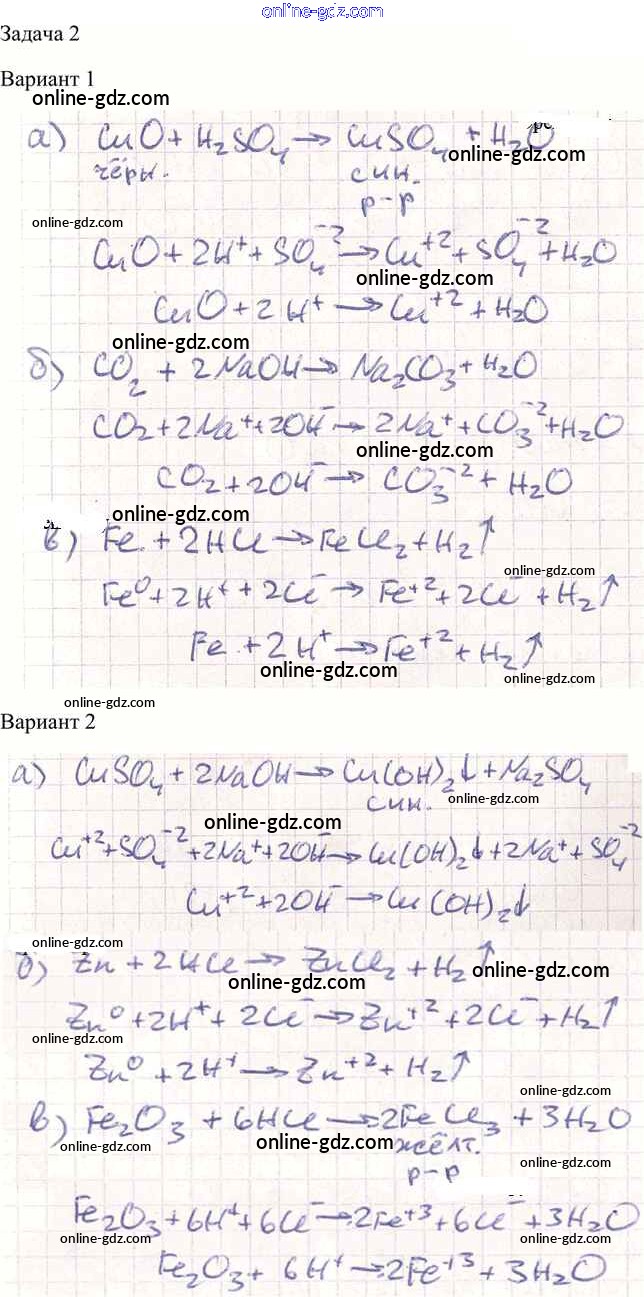 online-gdz.com
Задача 2
Вариант 1
online-gdz.com
а) CuO + H₂SO₄ → CuSO₄ + H₂O
online-gdz.com
чёрн. син.
online-gdz.com
р-р
online-gdz.com
CuO + 2H⁺ + SO₄⁻² → Cu⁺² + SO₄⁻² + H₂O
online-gdz.com
CuO + 2H⁺ → Cu⁺² + H₂O
online-gdz.com
б) CO₂ + 2NaOH → Na₂CO₃ + H₂O
online-gdz.com
CO₂ + 2Na⁺ + 2OH⁻ → 2Na⁺ + CO₃⁻² + H₂O
online-gdz.com
CO₂ + 2OH⁻ → CO₃⁻² + H₂O
online-gdz.com
в) Fe + 2HCl → FeCl₂ + H₂↑
online-gdz.com
Fe⁰ + 2H⁺ + 2Cl⁻ → Fe⁺² + 2Cl⁻ + H₂↑
Fe + 2H⁺ → Fe⁺² + H₂↑
online-gdz.com
online-gdz.com
online-gdz.com
Вариант 2
а) CuSO₄ + 2NaOH → Cu(OH)₂↓ + Na₂SO₄
син.
online-gdz.com
online-gdz.com
Cu⁺² + SO₄⁻² + 2Na⁺ + 2OH⁻ → Cu(OH)₂↓ + 2Na⁺ + SO₄⁻²
Cu⁺² + 2OH⁻ → Cu(OH)₂↓
online-gdz.com
б) Zn + 2HCl → ZnCl₂ + H₂↑
online-gdz.com
online-gdz.com
Zn⁰ + 2H⁺ + 2Cl⁻ → Zn⁺² + 2Cl⁻ + H₂↑
online-gdz.com
Zn⁰ + 2H⁺ → Zn⁺² + H₂↑
online-gdz.com
в) Fe₂O₃ + 6HCl → 2FeCl₃ + 3H₂O
online-gdz.com
online-gdz.com
жёлт.
online-gdz.com
р-р
Fe₂O₃ + 6H⁺ + 6Cl⁻ → 2Fe⁺³ + 6Cl⁻ + 3H₂O
online-gdz.com
online-gdz.com
Fe₂O₃ + 6H⁺ → 2Fe⁺³ + 3H₂O